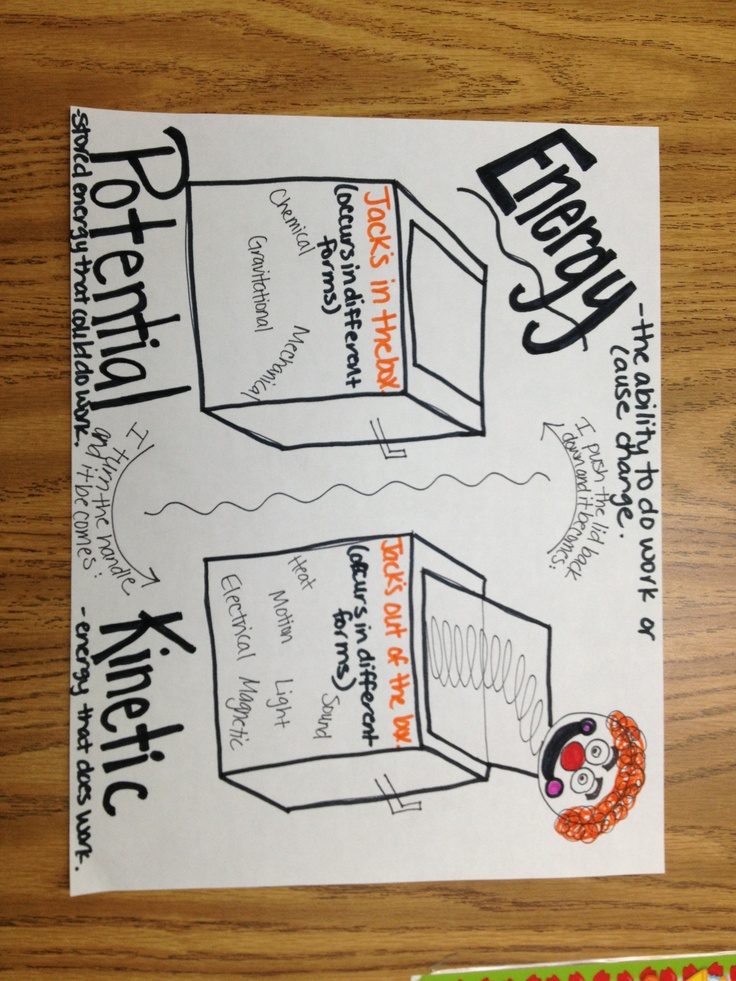 Energy
-the ability to do work or
cause change.
I push the lid back
down and it becomes:
Jack's in the box.
(occurs in different
forms)
Chemical
Gravitational
Mechanical
Jack's out of the box.
(occurs in different
forms)
Heat
Motion
Light
Sound
Electrical
Magnetic
Potential
-stored energy that could do work.
I turn the handle
and it becomes:
Kinetic
-energy that does work.